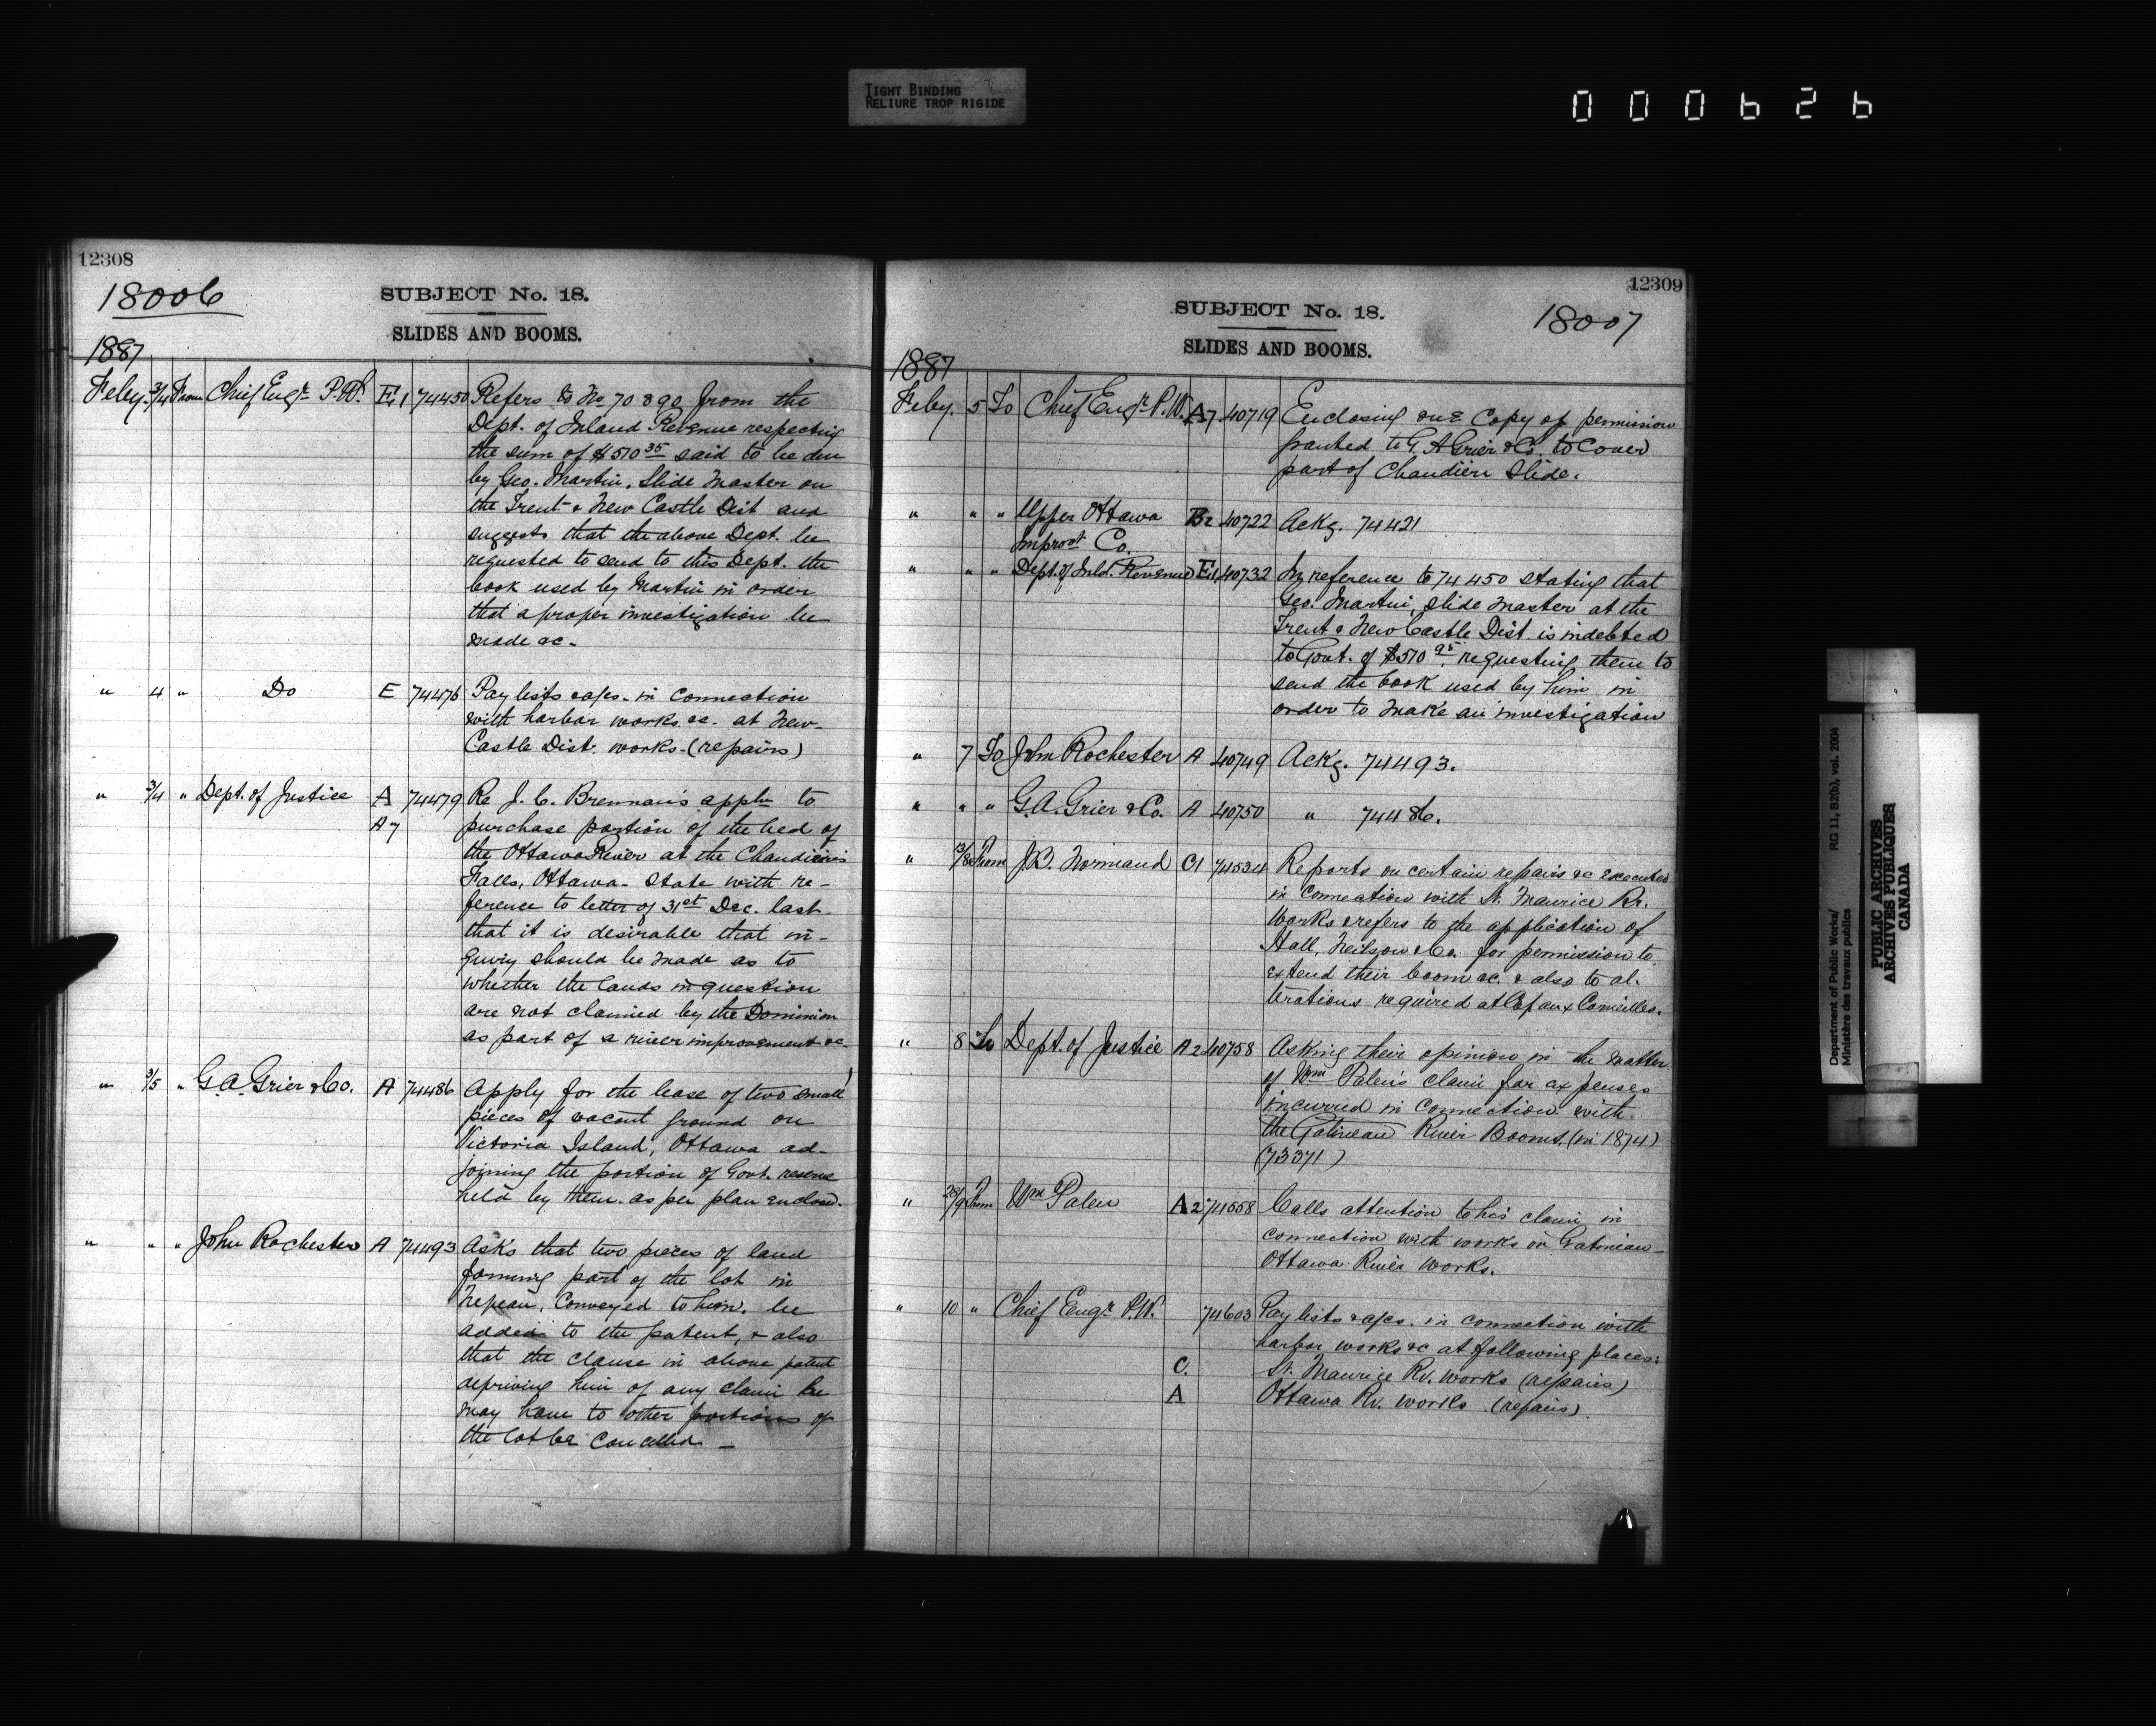 TIGHT BINDING
RELIURE TROP RIGIDE
000626
12308
18006
SUBJECT No. 18.
SLIDES AND BOOMS.
1887
Feby. 3/4 From Chief Engr. P.W. E1 74450 Refers to No 70890 from the
Dept. of Inland Revenue respecting
the sum of $510 35 said to be due
by Geo. Martin, Slide Master on
the Trent & New Castle Dist and
suggests that the above Dept. be
requested to send to this Dept. the
book used by Martin in order
that a proper investigation be
made &c -
" 4 " Do E 74476 Pay lists & a/cs. in connection
with harbor works &c. at New-
Castle Dist. works - (repairs)
" 3/4 " Dept. of Justice A 74479 Re J. C. Brennan's appln to
A7 purchase portion of the bed of
the Ottawa River at the Chaudière
Falls, Ottawa - State with re-
ference to letter of 31st Dec. last
that it is desirable that in-
quiry should be made as to
whether the lands in question
are not claimed by the Dominion
as part of a river improvement &c
" 3/5 " G. A. Grier & Co. A 74486 Apply for the lease of two small
pieces of vacant ground on
Victoria Island, Ottawa ad-
joining the portion of Govt. reserve
held by them. as per plan enclosed.
" " " John Rochester A 74493 Asks that two pieces of land
forming part of the lot in
Nepean, Conveyed to him, be
added to the patent, & also
that the clause in above patent
depriving him of any claim he
may have to other portions of
the lot be Cancelled -
12309
SUBJECT No. 18.
18007
SLIDES AND BOOMS.
1887
Feby. 5 To Chief Engr. P.W. A7 40719 Enclosing one Copy of permission
granted to G. A Grier & Co. to Cover
part of Chaudière Slide.
" " " Upper Ottawa B2 40722 Ackg. 74421
Improvt Co.
" " " Dept. of Inld. Revenue E1 40732 In reference to 74450 stating that
Geo. Martin, Slide Master at the
Trent & New Castle Dist. is indebted
to Govt. of $510 95, requesting them to
send the book used by him in
order to make an investigation
" 7 To John Rochester A 40749 Ackg. 74493.
" " " G. A. Grier & Co. A 40750 " 74486.
" From J. B. Normand C1 74534 Reports on certain repairs &c executed
in connection with St. Maurice Rr.
Works & refers to the application of
Hall, Neilson & Co. for permission to
extend their boom &c. & also to al-
terations required at Cap aux Corneilles.
" 8 To Dept. of Justice A2 40758 Asking their opinion in the matter
of Wm Palen's claim for expenses
incurred in connection with
the Gatineau River Booms. (in 1874)
(73371)
" 28/9 From Wm Palen A2 74558 Calls attention to his claim in
connection with works on Gatineau -
Ottawa River works.
" 10 " Chief Engr. P.W. 74603 Pay lists & a/cs. in connection with
harbor works &c at following places:
C. St. Maurice Rv. works (repairs)
A Ottawa Rv. works (repairs)
Department of Public Works/ RG 11, B2(b), vol. 2004
Ministère des travaux publics
PUBLIC ARCHIVES
ARCHIVES PUBLIQUES
CANADA